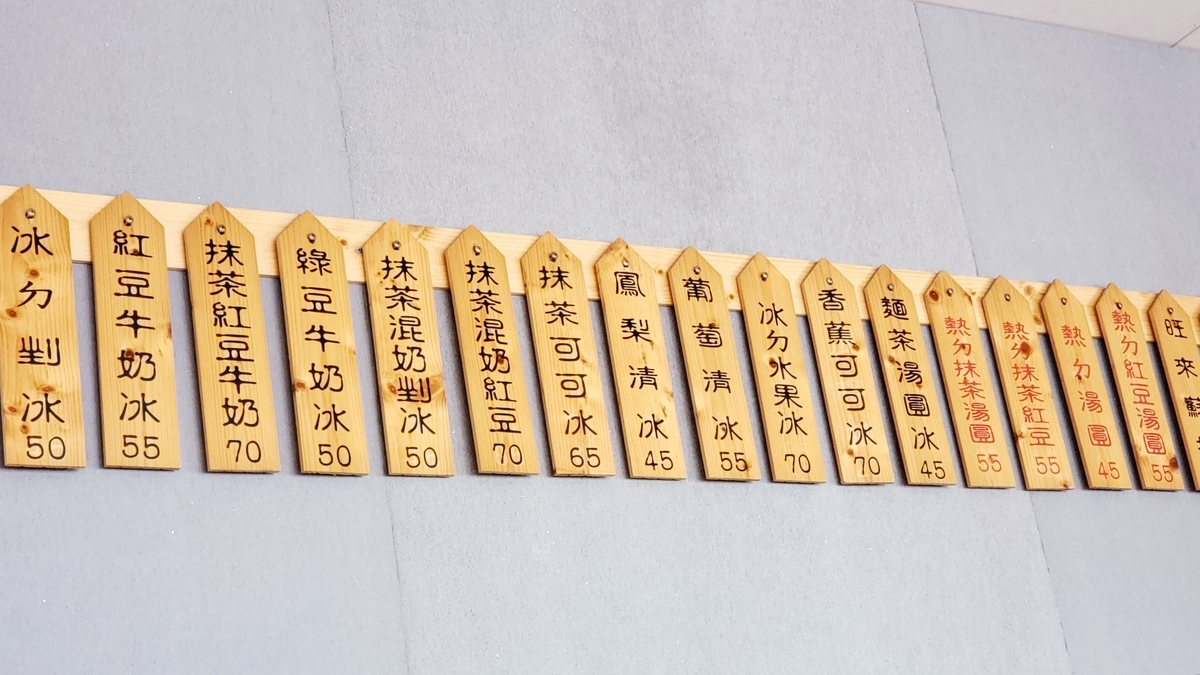 冰ㄉ剉冰
50
紅豆牛奶冰
55
抹茶紅豆牛奶
70
綠豆牛奶冰
50
抹茶混奶剉冰
50
抹茶混奶紅豆
70
抹茶可可冰
65
鳳梨清冰
45
葡萄清冰
55
冰ㄉ水果冰
70
香蕉可可冰
70
麵茶湯圓冰
45
熱ㄉ抹茶湯圓
55
熱ㄉ抹茶紅豆
55
熱ㄉ湯圓
45
熱ㄉ紅豆湯圓
55
旺來蘇